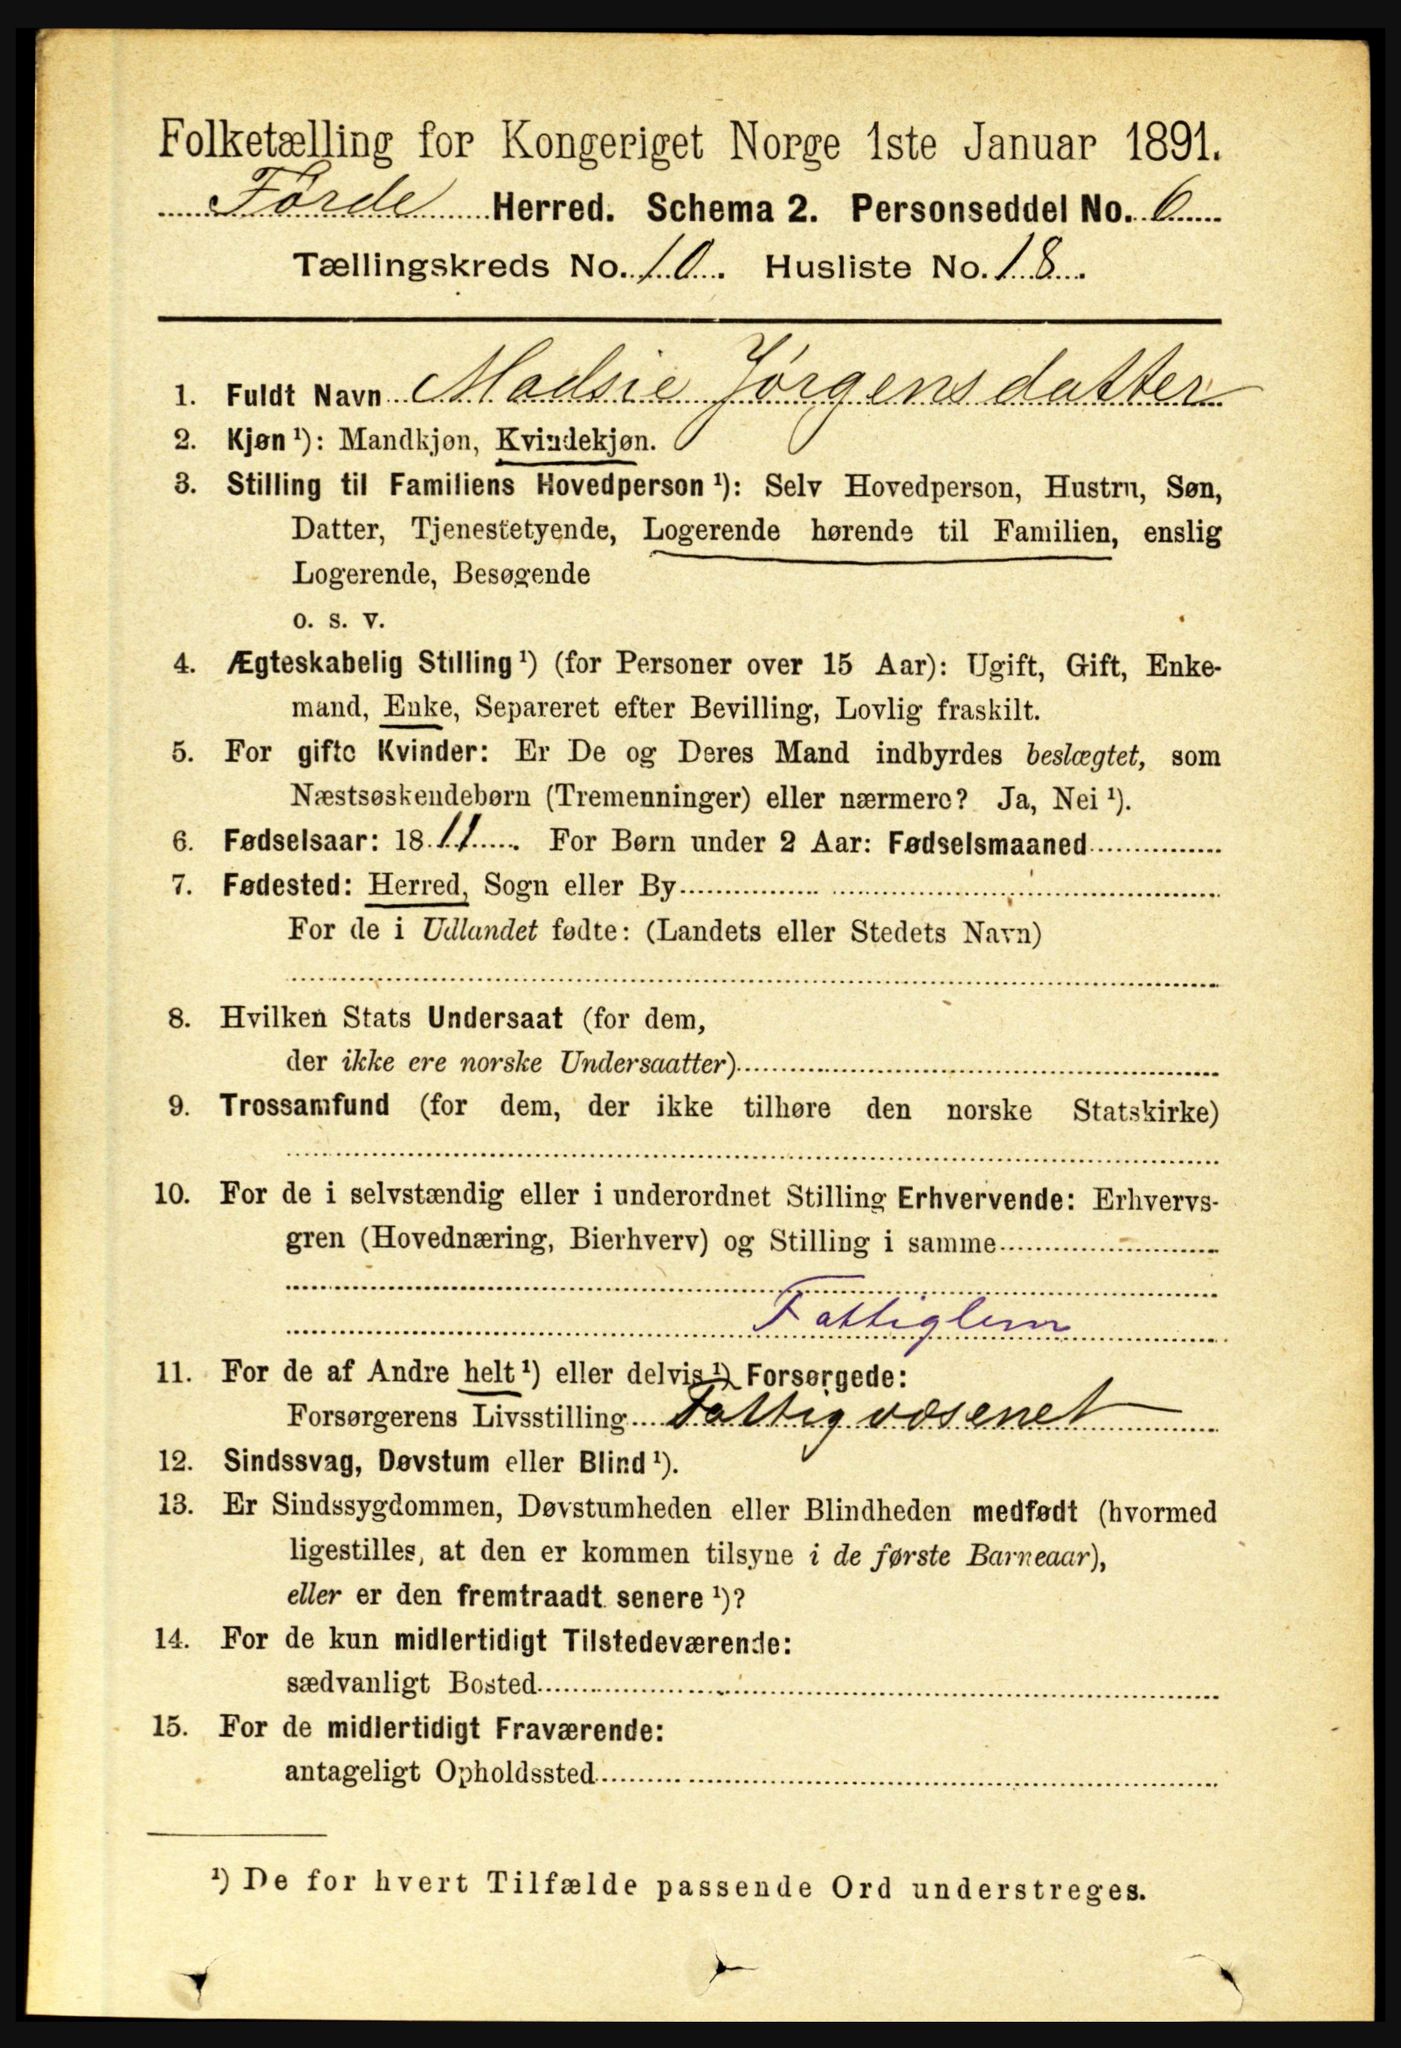 Folketælling for Kongeriget Norge 1ste Januar 1891.
Førde Herred. Schema 2. Personseddel No. 6
Tællingskreds No. 10. Husliste No. 18.
1. Fuldt Navn Madsie Jørgensdatter
2. Kjøn ¹): Mandkjøn, Kvindekjøn.
3. Stilling til Familiens Hovedperson ¹): Selv Hovedperson, Hustru, Søn,
Datter, Tjenestetyende, Logerende hørende til Familien, enslig
Logerende, Besøgende
o. s. v.
4. Ægteskabelig Stilling ¹) (for Personer over 15 Aar): Ugift, Gift, Enke-
mand, Enke, Separeret efter Bevilling, Lovlig fraskilt.
5. For gifte Kvinder: Er De og Deres Mand indbyrdes beslægtet, som
Næstsøskendebørn (Tremenninger) eller nærmere? Ja, Nei ¹).
6. Fødselsaar: 1811. For Børn under 2 Aar: Fødselsmaaned
7. Fødested: Herred, Sogn eller By
For de i Udlandet fødte: (Landets eller Stedets Navn)
8. Hvilken Stats Undersaat (for dem,
der ikke ere norske Undersaatter)
9. Trossamfund (for dem, der ikke tilhøre den norske Statskirke)
10. For de i selvstændig eller i underordnet Stilling Erhvervende: Erhvervs-
gren (Hovednæring, Bierhverv) og Stilling i samme
Fattiglem
11. For de af Andre helt ¹) eller delvis ¹) Forsørgede:
Forsørgerens Livsstilling Fattigvæsenet
12. Sindssvag, Døvstum eller Blind ¹).
13. Er Sindssygdommen, Døvstumheden eller Blindheden medfødt (hvormed
ligestilles, at den er kommen tilsyne i de første Barneaar),
eller er den fremtraadt senere ¹)?
14. For de kun midlertidigt Tilstedeværende:
sædvanligt Bosted
15. For de midlertidigt Fraværende:
antageligt Opholdssted
¹) De for hvert Tilfælde passende Ord understreges.